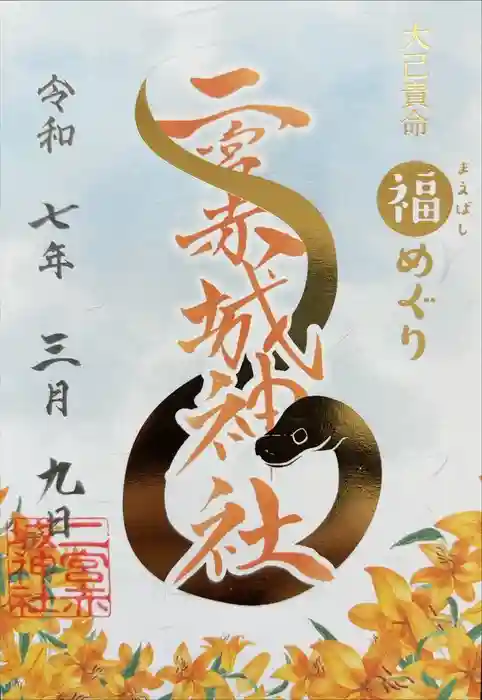 大己貴命
まえばし
福めぐり
二宮赤城神社
令和 七年 三月 九日
二宮赤
城神社